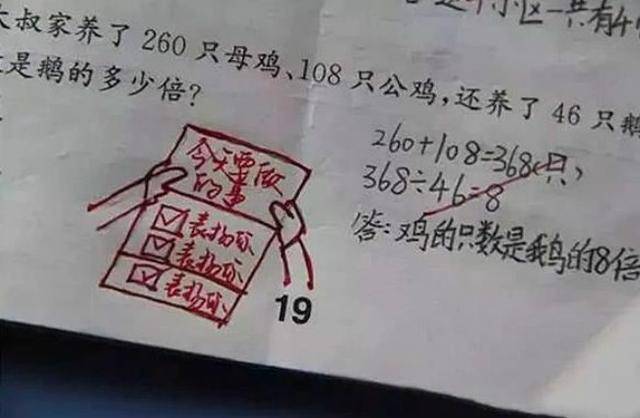 这个小区一共有4
大叔家养了260只母鸡、108只公鸡,还养了46只鹅
是鹅的多少倍?
260+108=368(只)
368÷46=8
答:鸡的只数是鹅的8倍
今天要做
的事
表扬你
表扬你
表扬你
19